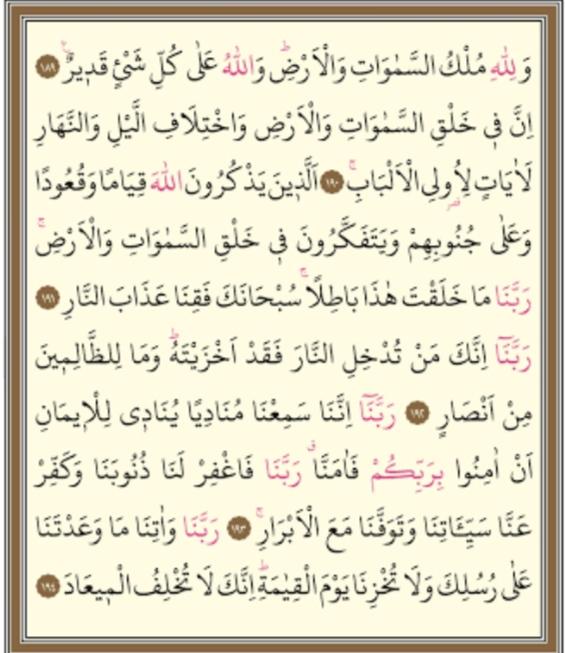 وَلِلّٰهِ مُلْكُ السَّمٰوَاتِ وَالْاَرْضِۜ وَاللّٰهُ عَلٰى كُلِّ شَيْءٍ قَدٖيرٌۚ ﴿١٨٩﴾
اِنَّ فٖي خَلْقِ السَّمٰوَاتِ وَالْاَرْضِ وَاخْتِلَافِ الَّيْلِ وَالنَّهَارِ
لَاٰيَاتٍ لِاُولِي الْاَلْبَابِۚ ﴿١٩٠﴾ اَلَّذٖينَ يَذْكُرُونَ اللّٰهَ قِيَامًا وَقُعُودًا
وَعَلٰى جُنُوبِهِمْ وَيَتَفَكَّرُونَ فٖي خَلْقِ السَّمٰوَاتِ وَالْاَرْضِۚ
رَبَّنَا مَا خَلَقْتَ هٰذَا بَاطِلًاۚ سُبْحَانَكَ فَقِنَا عَذَابَ النَّارِ ﴿١٩١﴾
رَبَّنَٓا اِنَّكَ مَنْ تُدْخِلِ النَّارَ فَقَدْ اَخْزَيْتَهُۜ وَمَا لِلظَّالِمٖينَ
مِنْ اَنْصَارٍ ﴿١٩٢﴾ رَبَّنَٓا اِنَّنَا سَمِعْنَا مُنَادِيًا يُنَادٖي لِلْاٖيمَانِ
اَنْ اٰمِنُوا بِرَبِّكُمْ فَاٰمَنَّاۗ رَبَّنَا فَاغْفِرْ لَنَا ذُنُوبَنَا وَكَفِّرْ
عَنَّا سَيِّـَٔاتِنَا وَتَوَفَّنَا مَعَ الْاَبْرَارِۚ ﴿١٩٣﴾ رَبَّنَا وَاٰتِنَا مَا وَعَدْتَنَا
عَلٰى رُسُلِكَ وَلَا تُخْزِنَا يَوْمَ الْقِيٰمَةِۜ اِنَّكَ لَا تُخْلِفُ الْمٖيعَادَ ﴿١٩٤﴾